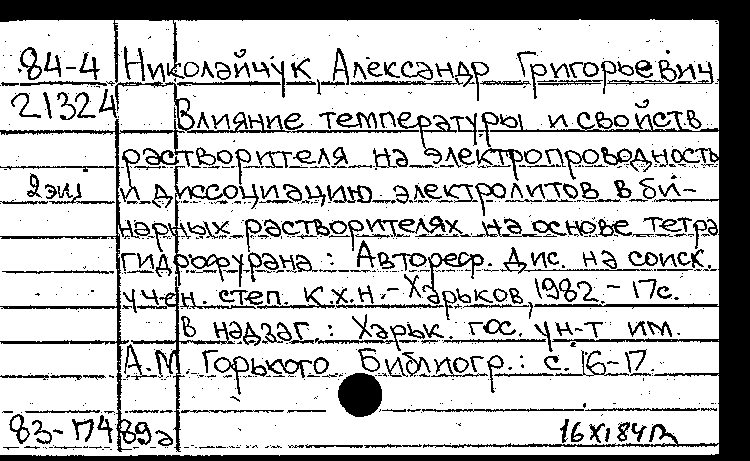 84-4 Николайчук, Александр Григорьевич
21324 Влияние температуры и свойств
растворителя на электропроводность
2 экз и диссоциацию электролитов в би-
нарных растворителях на основе тетра
гидрофурана : Автореф. Дис. на соиск.
учен. степ. к.х.н.- Харьков, 1982.- 17с.
В надзаг.: Харьк. гос. ун-т им.
А.М. Горького Библиогр.: с. 16-17.
83-17489а 16 XI 84